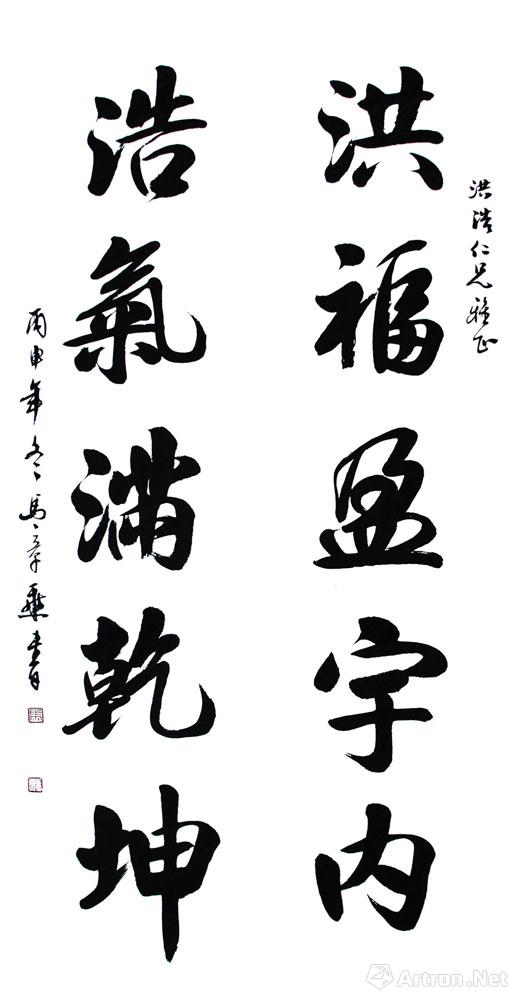 洪浩仁兄雅正
洪福盈宇内
浩氣满乾坤
丙申年冬馬章乘書
Artron.Net